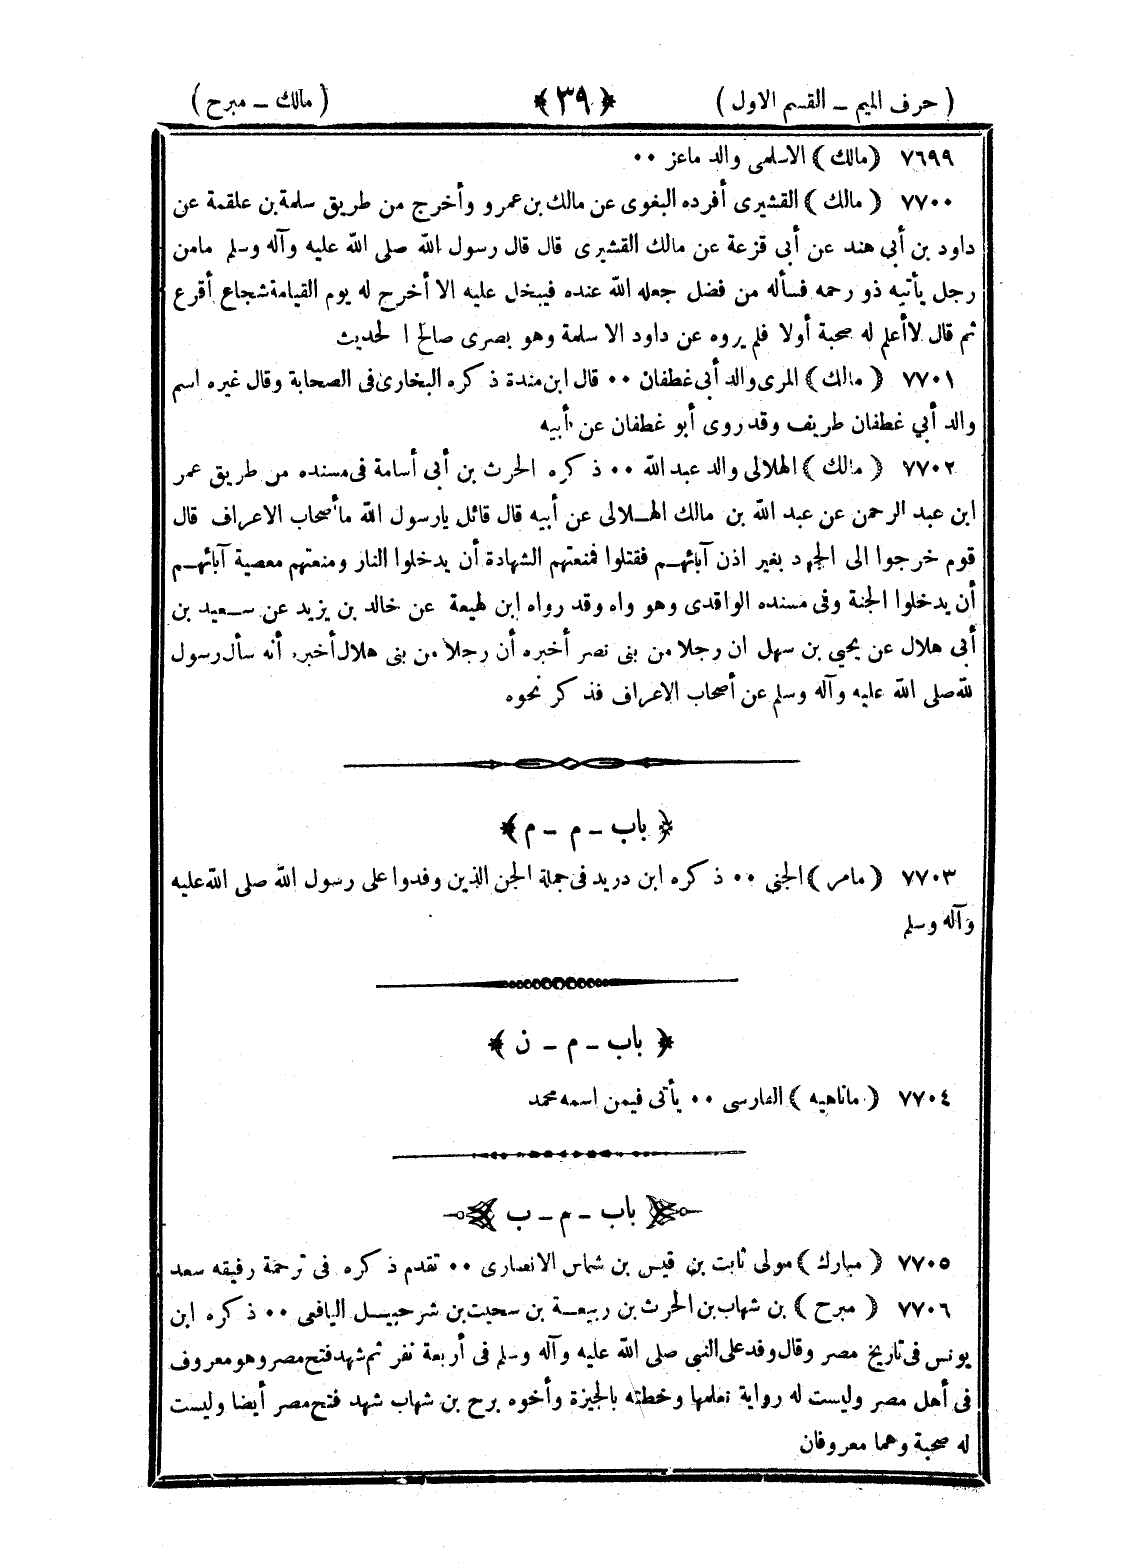 ( حرف الميم ــ القسم الاول ) ﴿ ٣٩ ﴾ ( مالك ــ مبرح )
٧٦٩٩ ( مالك ) الاسلمى والد ماعز ٠٠
٧٧٠٠ ( مالك ) القشيرى أفرده البغوى عن مالك بن عمرو وأخرج من طريق سلمة بن علقمة عن
داود بن أبي هند عن أبى قزعة عن مالك القشيرى قال قال رسول الله صلى الله عليه وآله وسلم مامن
رجل يأتيه ذو رحمه فسأله من فضل جعله الله عنده فيبخل عليه الا أخرج له يوم القيامة شجاع أقرع
ثم قال لا أعلم له صحبة أولا فلم يروه عن داود الا سلمة وهو بصرى صالح ا لحديث
٧٧٠١ ( مالك ) المرى والد أبى غطفان ٠٠ قال ابن مندة ذكره البخارى فى الصحابة وقال غيره اسم
والد أبي غطفان طريف وقد روى أبو غطفان عن أبيه
٧٧٠٢ ( مالك ) الهلالى والد عبد الله ٠٠ ذكره الحرث بن أبى أسامة فى مسنده من طريق عمر
ابن عبد الرحمن عن عبد الله بن مالك الهـلالى عن أبيه قال قائل يارسول الله ما أصحاب الاعراف قال
قوم خرجوا الى الجهد بغير اذن آبائهـم فقتلوا فمنعتهم الشهادة أن يدخلوا النار ومنعتهم معصية آبائهـم
أن يدخلوا الجنة وفى مسنده الواقدى وهو واه وقد رواه ابن لهيعة عن خالد بن يزيد عن سـعيد بن
أبى هلال عن يحيى بن سهل ان رجلا من بنى نصر أخبره أن رجلا من بنى هلال أخبره أنه سأل رسول
لله صلى الله عليه وآله وسلم عن أصحاب الاعراف فذكر نحوه
﴿ باب ــ م ــ م ﴾
٧٧٠٣ ( مامر ) الجنى ٠٠ ذكره ابن دريد فى جملة الجن الذين وفدوا على رسول الله صلى الله عليه
وآله وسلم
﴿ باب ــ م ــ ن ﴾
٧٧٠٤ ( ماناهيه ) الفارسى ٠٠ يأتى فيمن اسمه محمد
﴿ باب ــ م ــ ب ﴾
٧٧٠٥ ( مبارك ) مولى ثابت بن قيس بن شماس الانصارى ٠٠ تقدم ذكره فى ترجمة رفيقه سعد
٧٧٠٦ ( مبرح ) بن شهاب بن الحرث بن ربيعـة بن سحيت بن شرحبيـل اليافعى ٠٠ ذكره ابن
يونس فى تاريخ مصر وقال وفد على النبى صلى الله عليه وآله وسلم فى أربعة نفر ثم شهد فتح مصر وهو معروف
فى أهل مصر وليست له رواية نعلمها وخطته بالجيزة وأخوه برح بن شهاب شهد فتح مصر أيضا وليست
له صحبة وهما معروفان